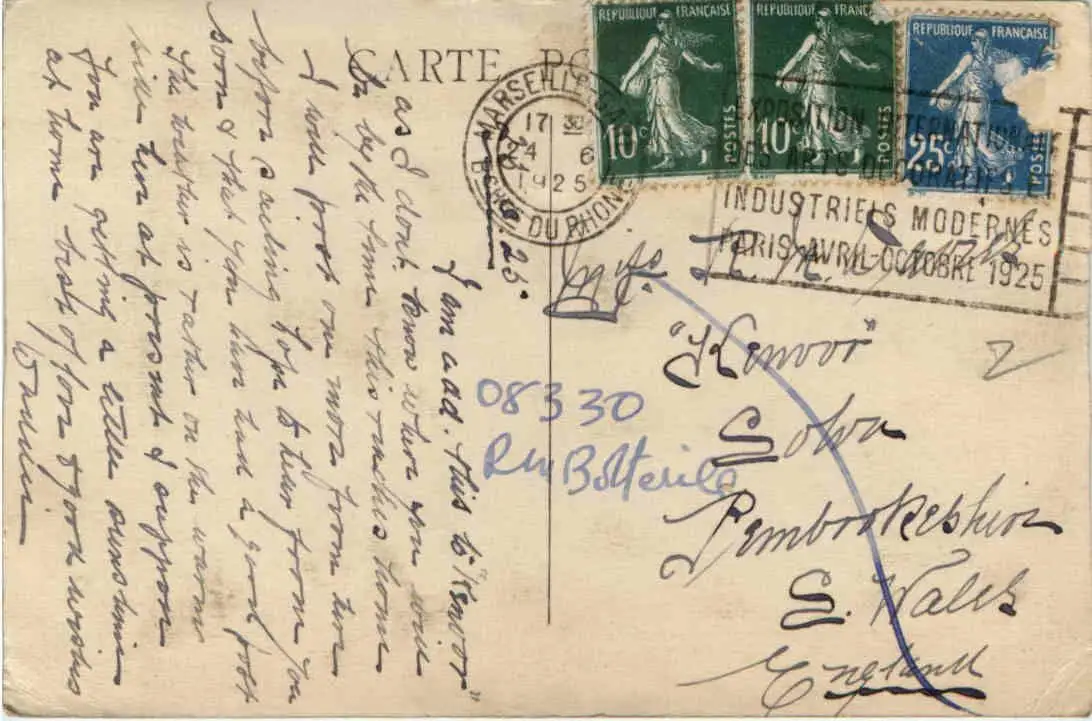 CARTE PO
REPUBLIQUE FRANÇAISE
10c
POSTES
REPUBLIQUE FRANÇAISE
10c
POSTES
REPUBLIQUE FRANÇAISE
25c
POSTES
MARSEILLE GARE
17 30
24 6
1925
BCHES DU RHONE
EXPOSITION INTERNATIONALE
DES ARTS DECORATIFS
INDUSTRIELS MODERNES
PARIS AVRIL-OCTOBRE 1925
25.
I am add. this to "Kenvor"
as I dont know where you will
be by the time this reaches home
I will post one more from here
before sailing hope to hear from you
soon & that you have had a good
The weather is rather on the warm
side here at present I suppose
You are getting a little sunshine
at home best of love & good wishes
"Kenvor"
Solva
Pembrokeshire
S. Wales
England
08330
Rm Botterile
2